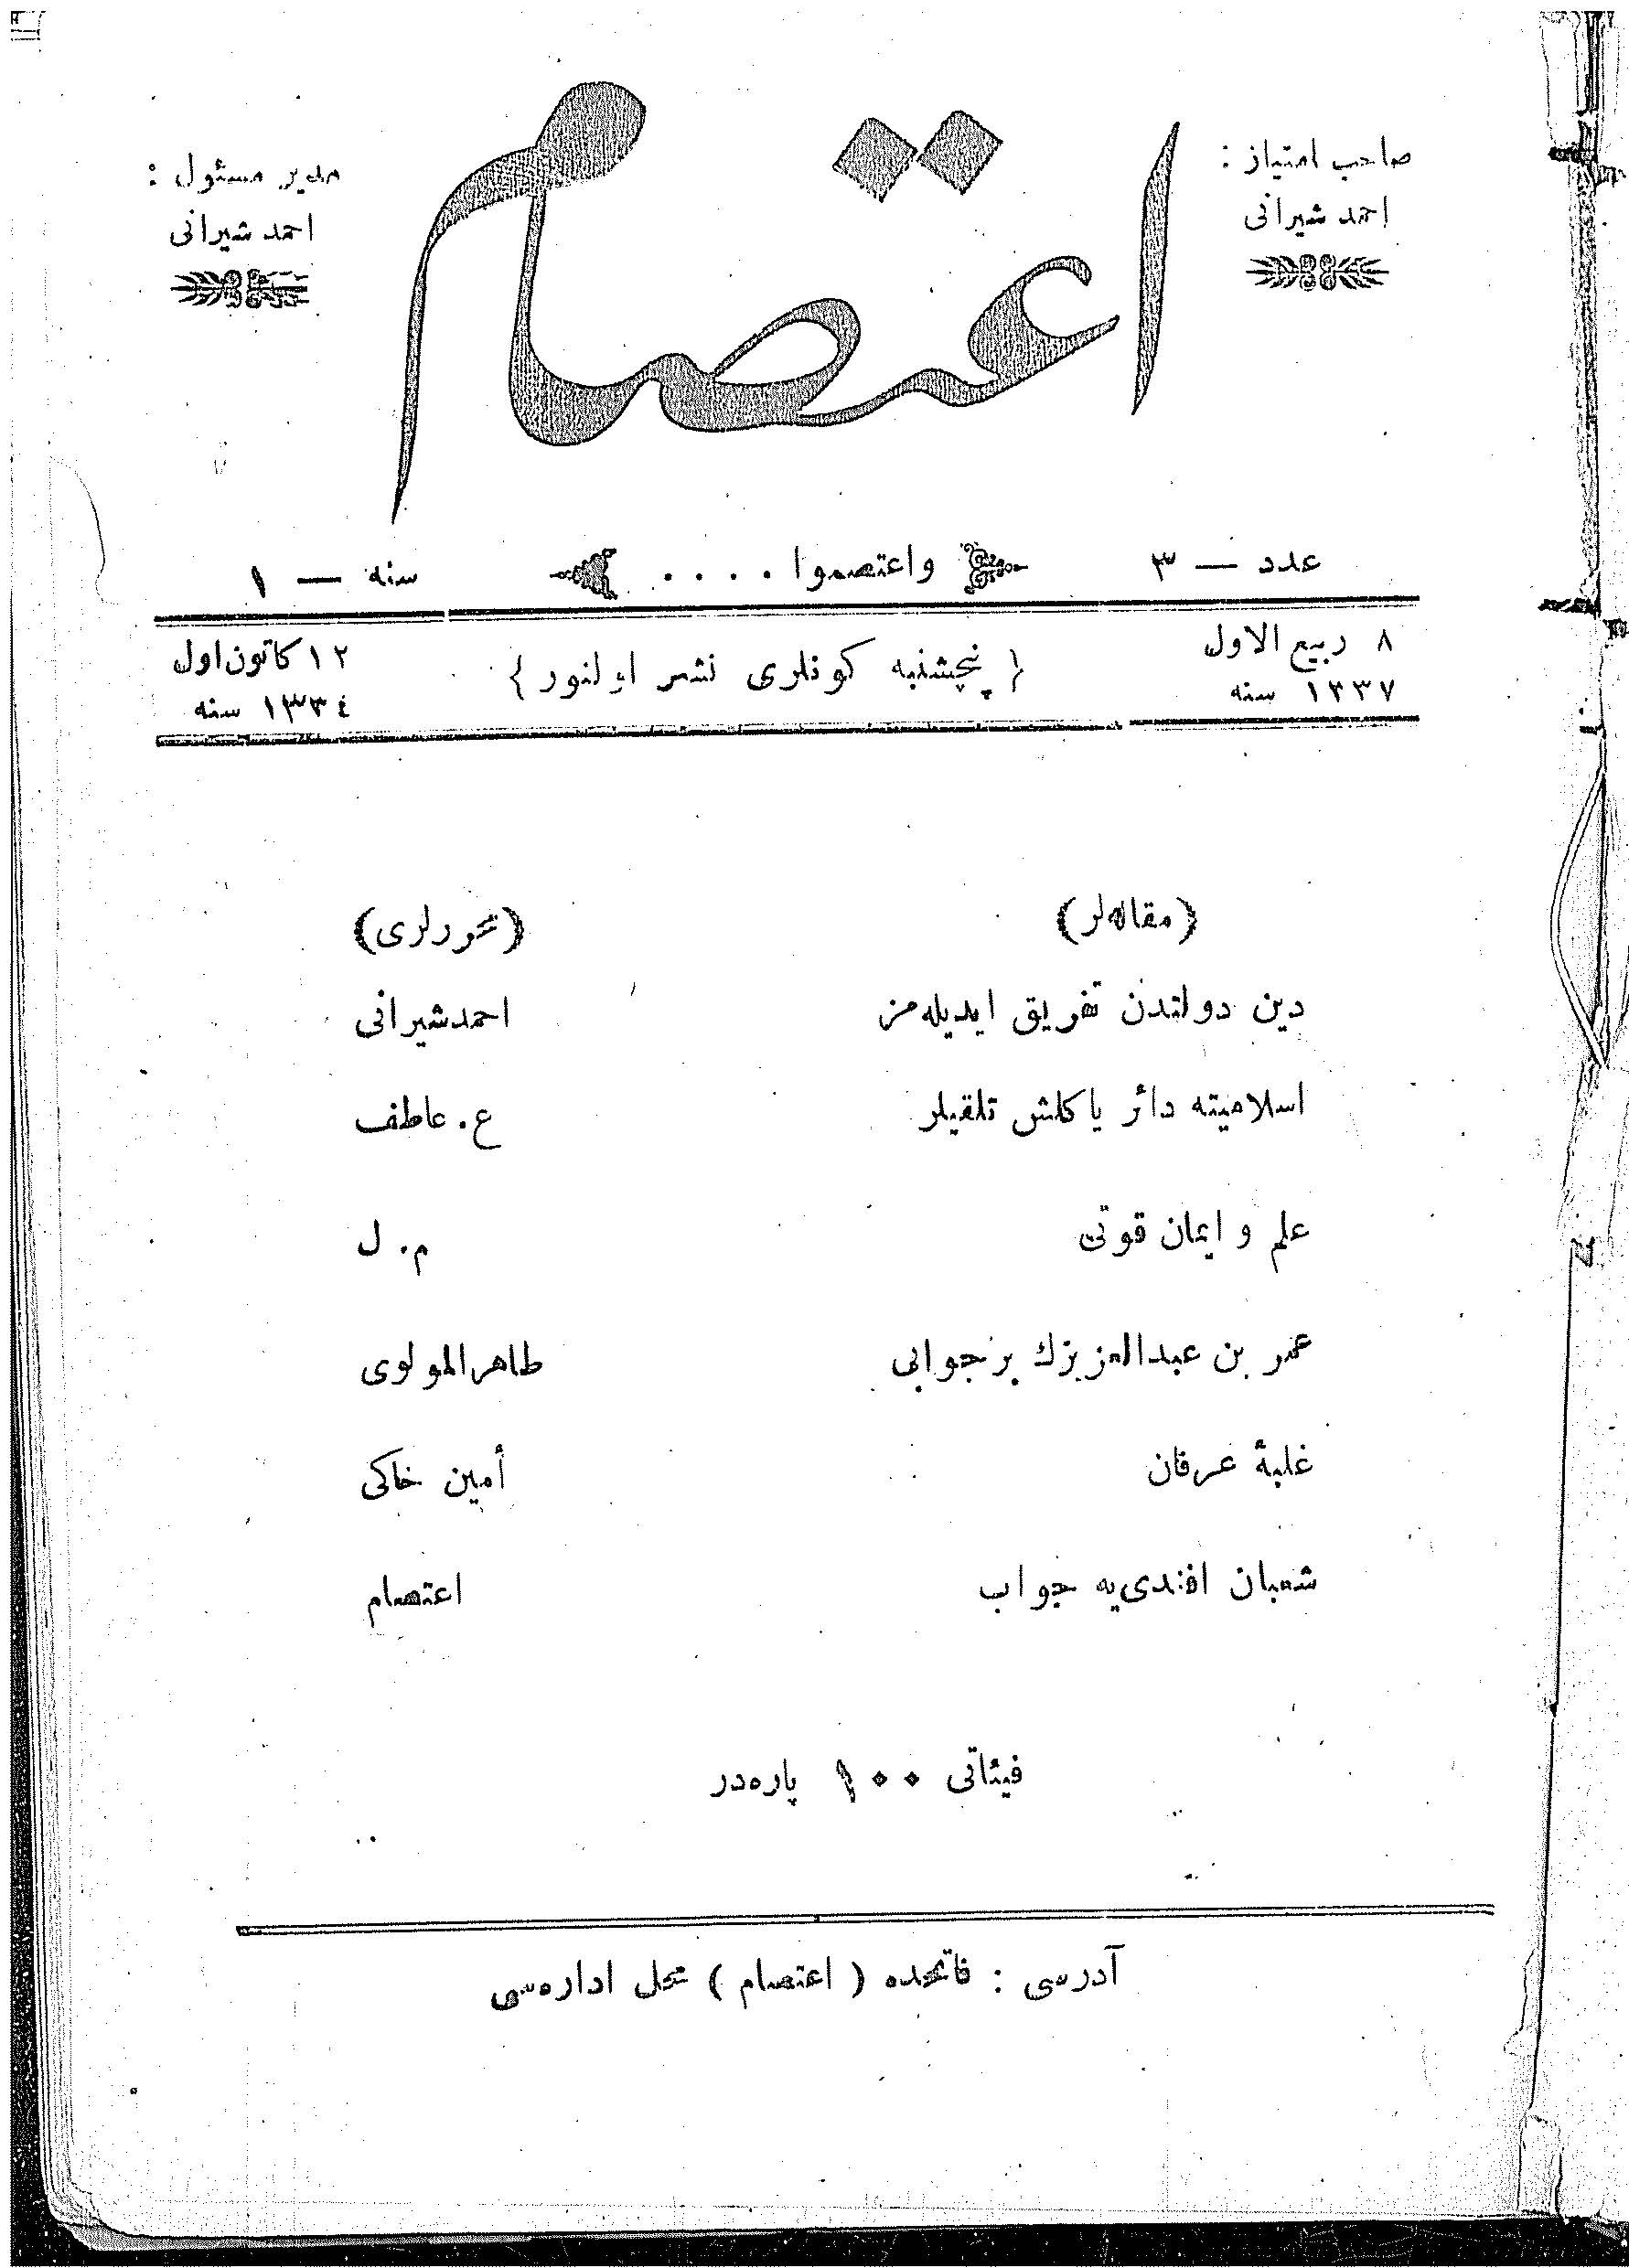 صاحب امتیاز :
احمد شیرانی
اعتصام
مدیر مسئول :
احمد شیرانی
عدد — ٣
واعتصموا . . . .
سنه — ١
٨ ربیع الاول
١٣٣٧ سنه
{ پنجشنبه کونلری نشر اولنور }
١٢ کانون اول
١٣٣٤ سنه
(مقاله‌لر)
(محررلری)
دین دولتدن تفریق ایدیله‌مز
احمد شیرانی
اسلامیته دائر یاکلش تلقیلر
ع. عاطف
علم و ایمان قوتی
م. ل
عمر بن عبدالعزیزك بر جوابی
طاهر المولوی
غلبهٔ عرفان
أمین خاکی
شعبان افندی‌یه جواب
اعتصام
فیئاتی ١٠٠ پاره‌در
آدرسی : فاتحده ( اعتصام ) محل اداره‌سی